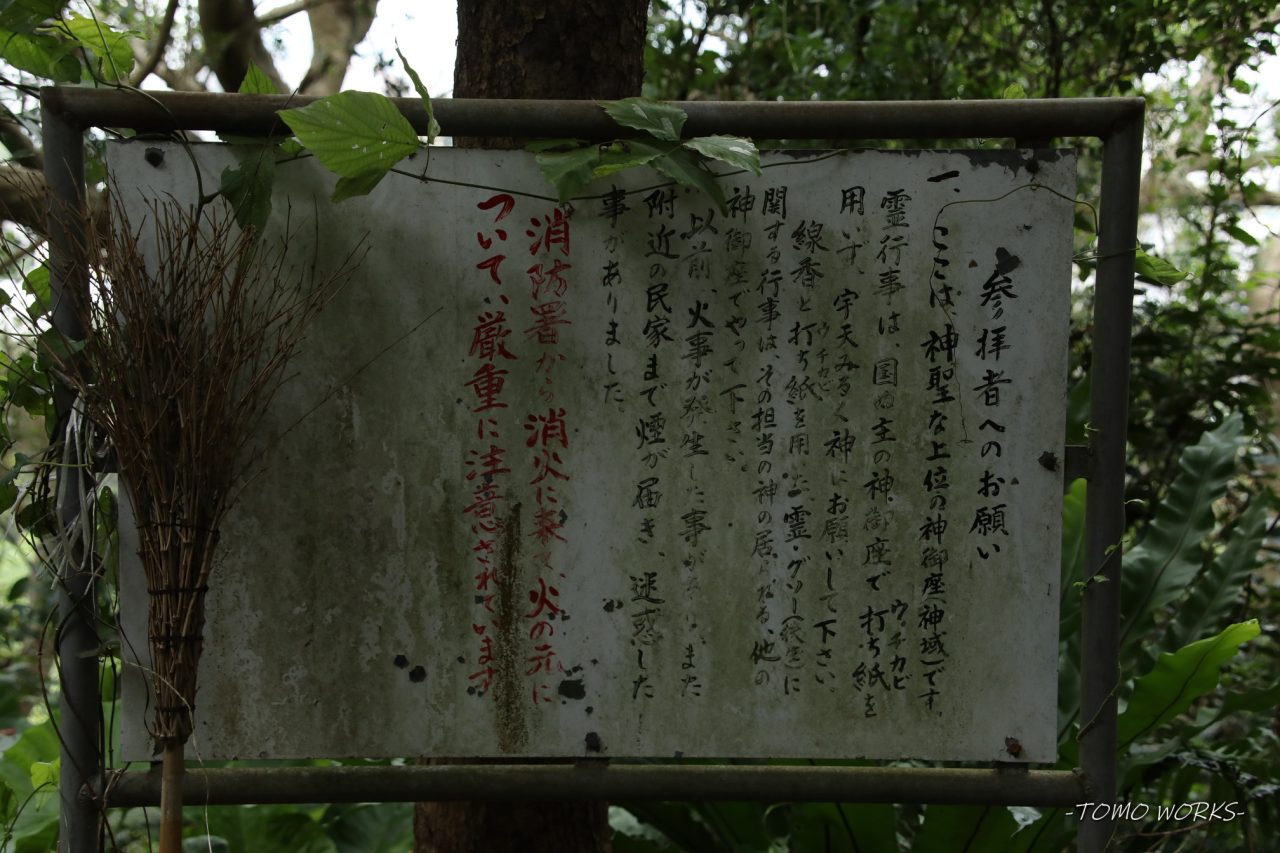 参拝者へのお願い
一、ここは、神聖な上位の神御座(神域)です。
霊行事は、国ぬ主の神御座で打ち紙を
ウチカビ
用いず、宇天みるく神にお願いして下さい。
線香と打ち紙を用い、霊・グソー(後生)に
ウチカビ
関する行事は、その担当の神の居られる、他の
神御座でやって下さい。
以前、火事が発生した事があり、また
附近の民家まで煙が届き、迷惑した
事がありました。
消防署から消火に来て、火の元に
ついて、厳重に注意されています
-TOMO WORKS-